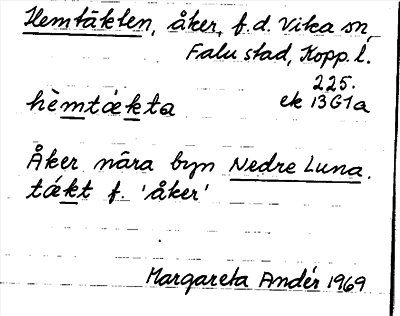 Hemtäkten, åker, f.d. Vika sn,
Falu stad, Kopp. l.
225.
ek 13G1a
hèmtǽkta
Åker nära byn Nedre Luna.
tǽkt f. 'åker'
Margareta Andér 1969